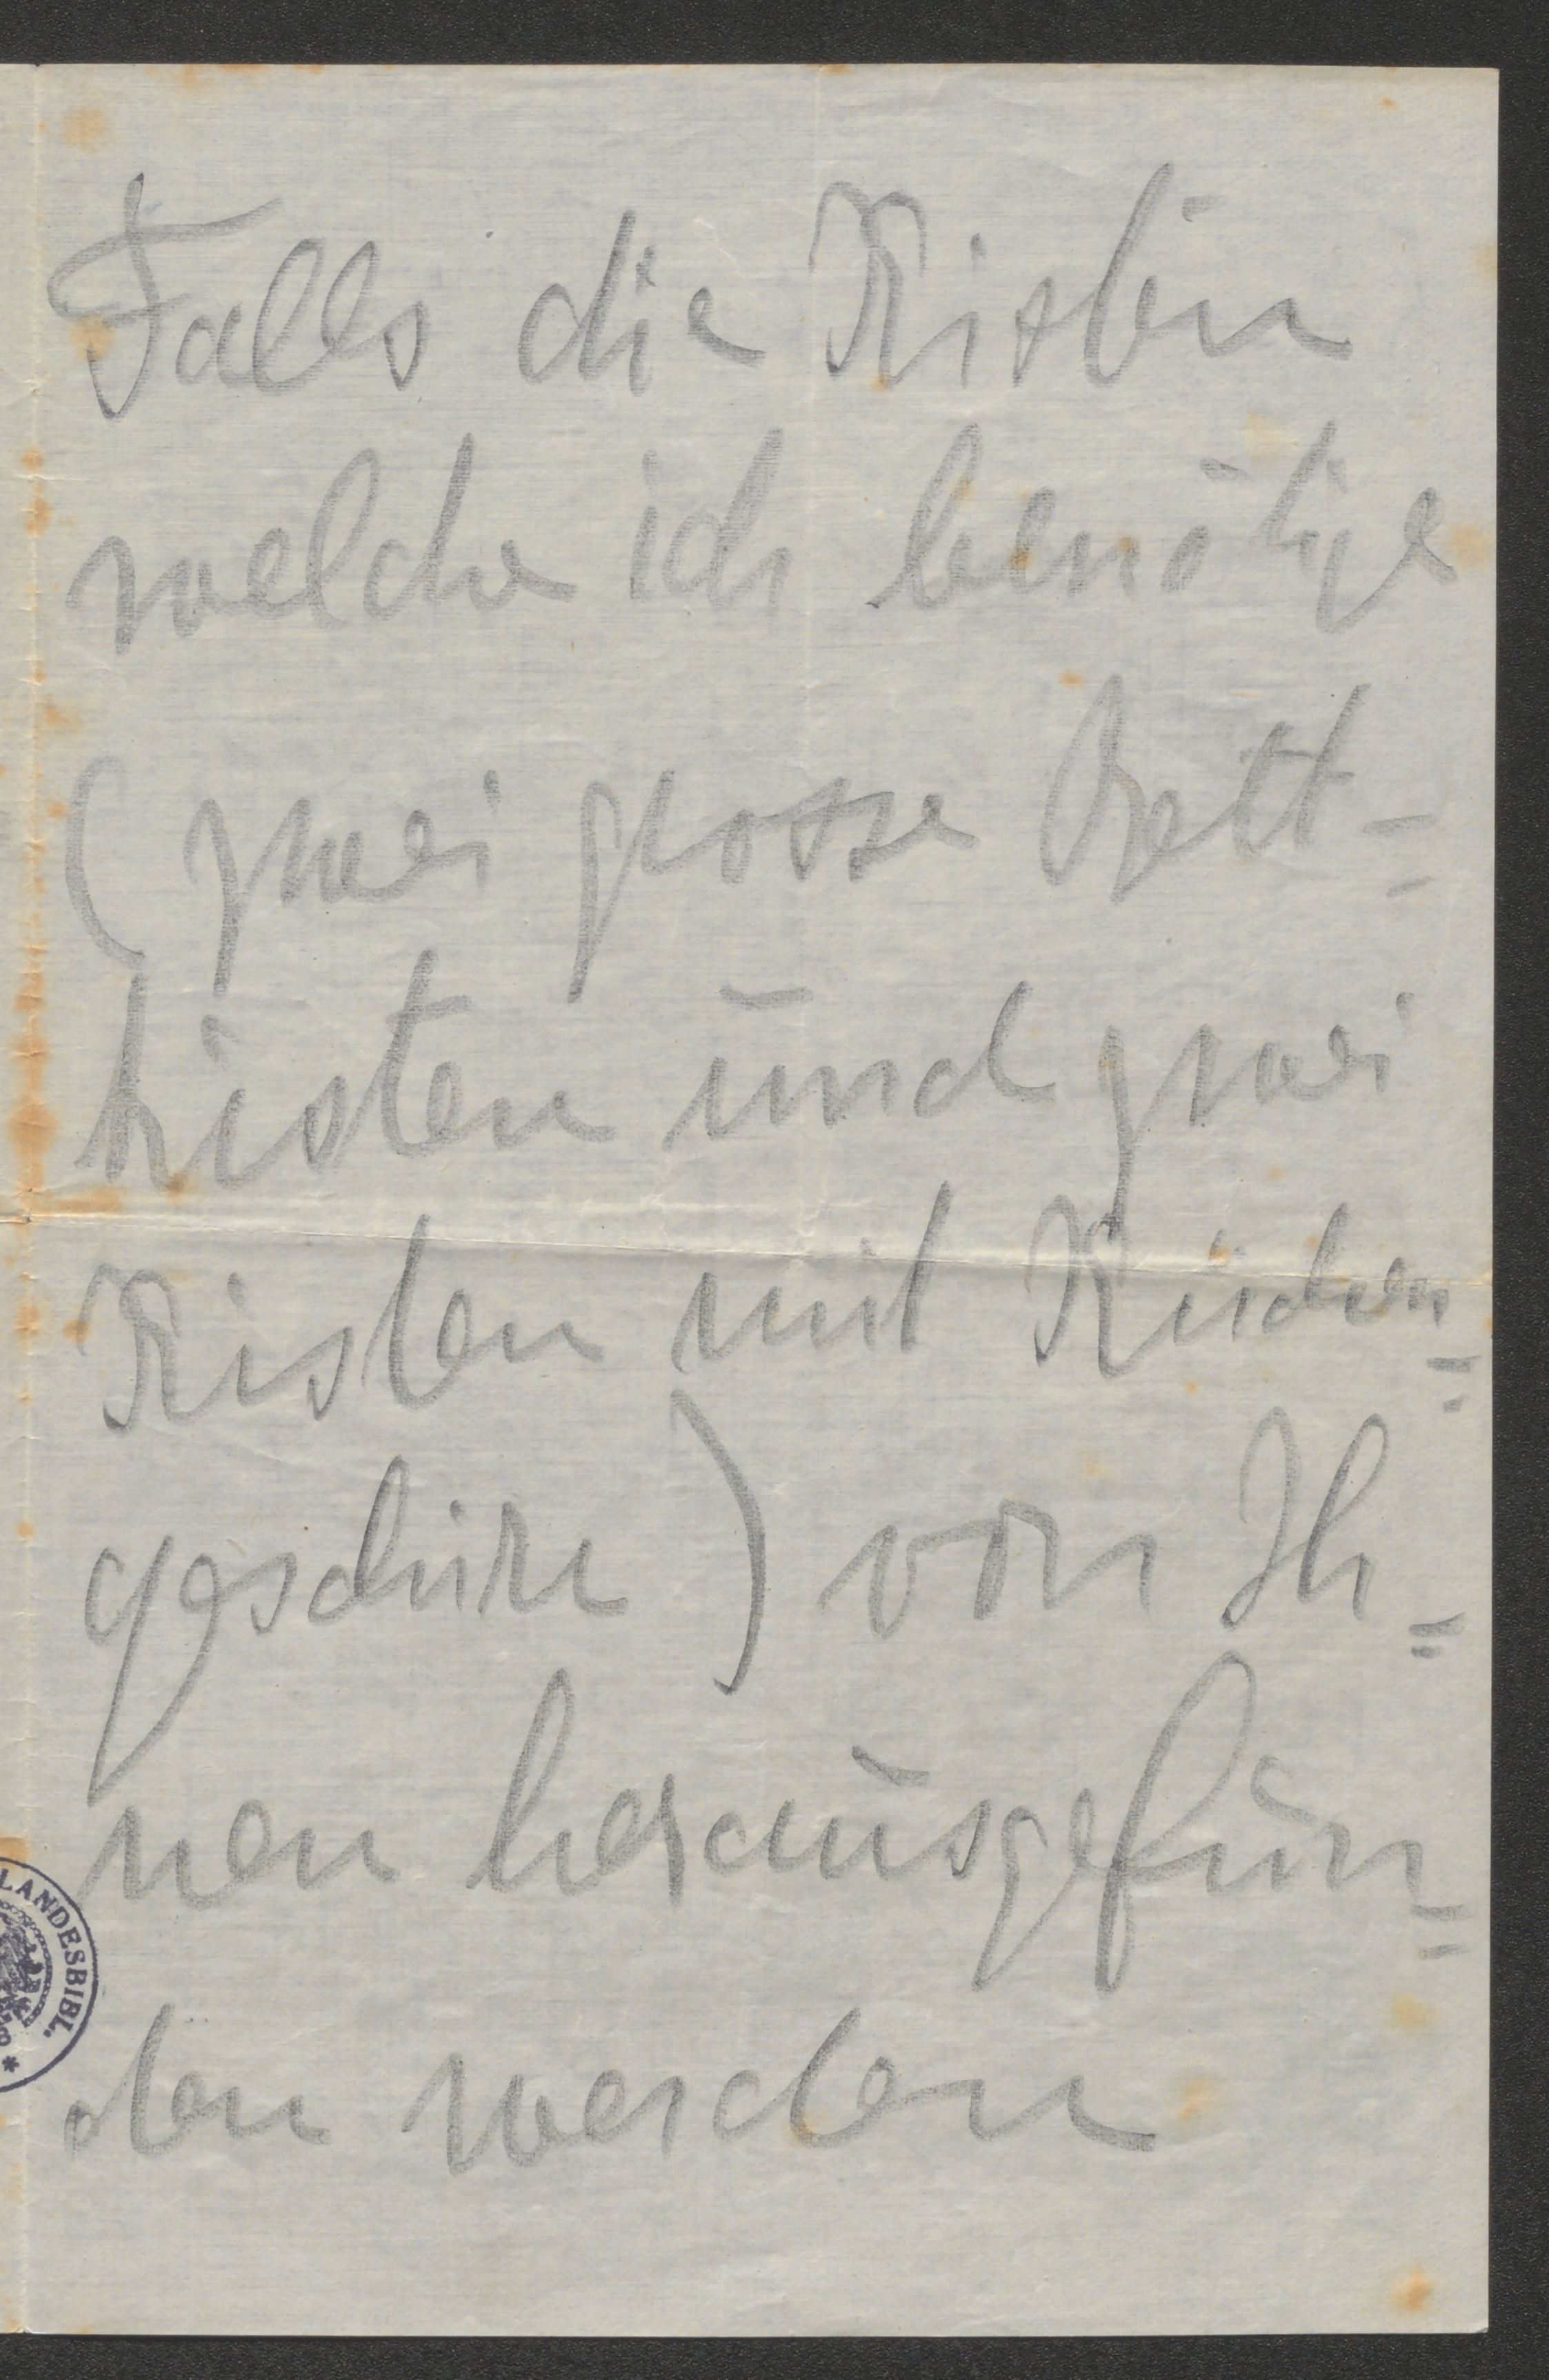 Falls die Kisten
welche ich benötige
(zwei grosse Bett=
kisten und zwei
Kisten mit Küchen=
geschirr) von Ih=
nen herausgefun=
den werden
LANDESBIBL.